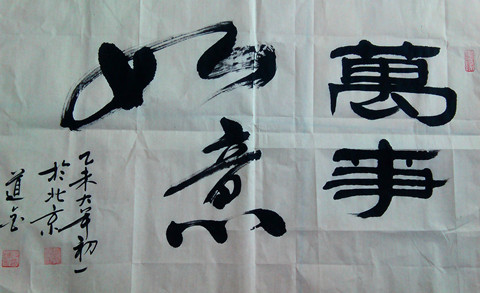 萬事
如意
乙未大年初一
於北京
道